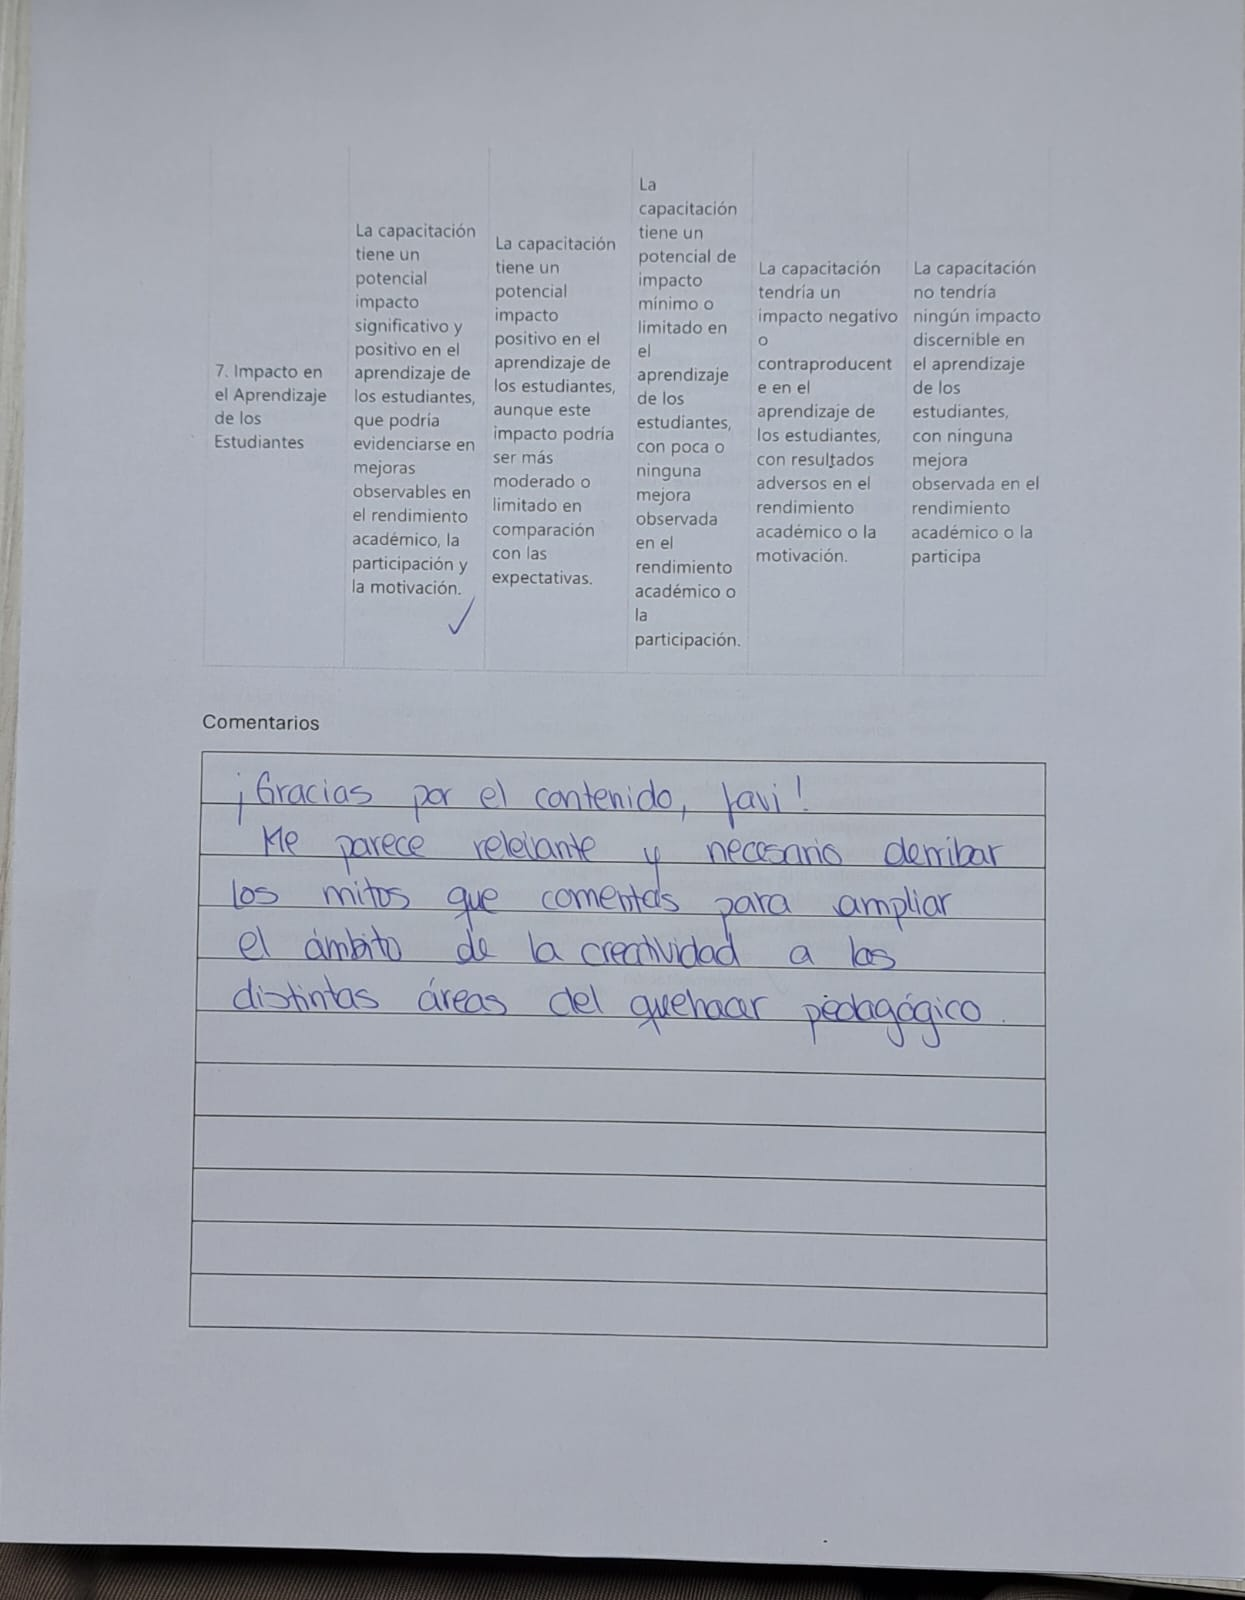 7. Impacto en
el Aprendizaje
de los
Estudiantes
La capacitación
tiene un
potencial
impacto
significativo y
positivo en el
aprendizaje de
los estudiantes,
que podría
evidenciarse en
mejoras
observables en
el rendimiento
académico, la
participación y
la motivación.
La capacitación
tiene un
potencial
impacto
positivo en el
aprendizaje de
los estudiantes,
aunque este
impacto podría
ser más
moderado o
limitado en
comparación
con las
expectativas.
La
capacitación
tiene un
potencial de
impacto
mínimo o
limitado en
el
aprendizaje
de los
estudiantes,
con poca o
ninguna
mejora
observada
en el
rendimiento
académico o
la
participación.
La capacitación
tendría un
impacto negativo
o
contraproducent
e en el
aprendizaje de
los estudiantes,
con resultados
adversos en el
rendimiento
académico o la
motivación.
La capacitación
no tendría
ningún impacto
discernible en
el aprendizaje
de los
estudiantes,
con ninguna
mejora
observada en el
rendimiento
académico o la
participa
Comentarios
¡Gracias por el contenido, Javi!
Me parece relevante y necesario derribar
los mitos que comentas para ampliar
el ámbito de la creatividad a las
distintas áreas del quehacer pedagógico.